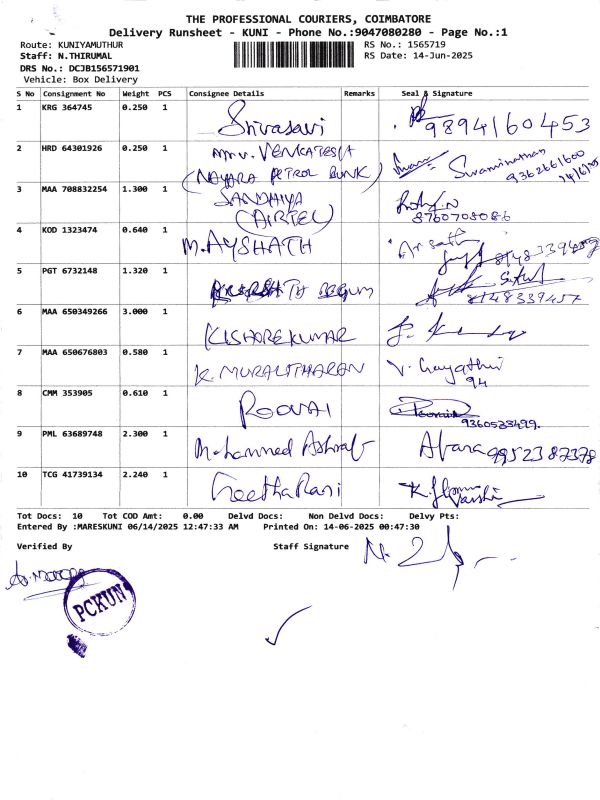 THE PROFESSIONAL COURIERS, COIMBATORE
Delivery Runsheet - KUNI - Phone No.:9047080280 - Page No.:1
Route: KUNIYAMUTHUR
RS No.: 1565719
Staff: N.THIRUMAL
RS Date: 14-Jun-2025
DRS No.: DCJB156571901
Vehicle: Box Delivery
S No Consignment No Weight PCS Consignee Details Remarks Seal & Signature
1 KRG 364745 0.250 1
Srivasavi 9894160453
2 HRD 64301926 0.250 1 VENKATESH
(NAYARA PETROL BUNK) Swaminathan
9362661600
14/6/25
3 MAA 708832254 1.300 1 SANDHIYA
(AIRTEL) 8760708086
4 KOD 1323474 0.640 1 M.AYSHATH
8148339457
5 PGT 6732148 1.320 1
BEGUM 8148339457
6 MAA 650349266 3.000 1
KISHORE KUMAR
7 MAA 650676803 0.580 1
K. MURALITHARAN V. Gayathri
94
8 CMM 353905 0.610 1
ROOVAI
9360528499.
9 PML 63689748 2.300 1
Mohammed Ashraf 9952387378
10 TCG 41739134 2.240 1
Geetha Rani
Tot Docs: 10 Tot COD Amt: 0.00 Delvd Docs: Non Delvd Docs: Delvy Pts:
Entered By :MARESKUNI 06/14/2025 12:47:33 AM Printed On: 14-06-2025 00:47:30
Verified By Staff Signature
PCKUN